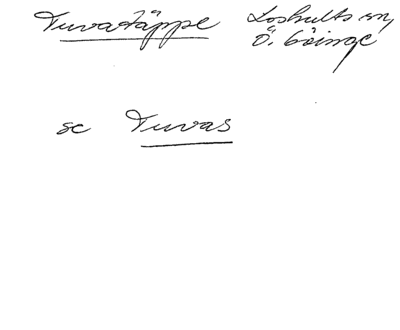 Tuvatäppe Loshults sn,
Ö. Göinge
se Tuvas